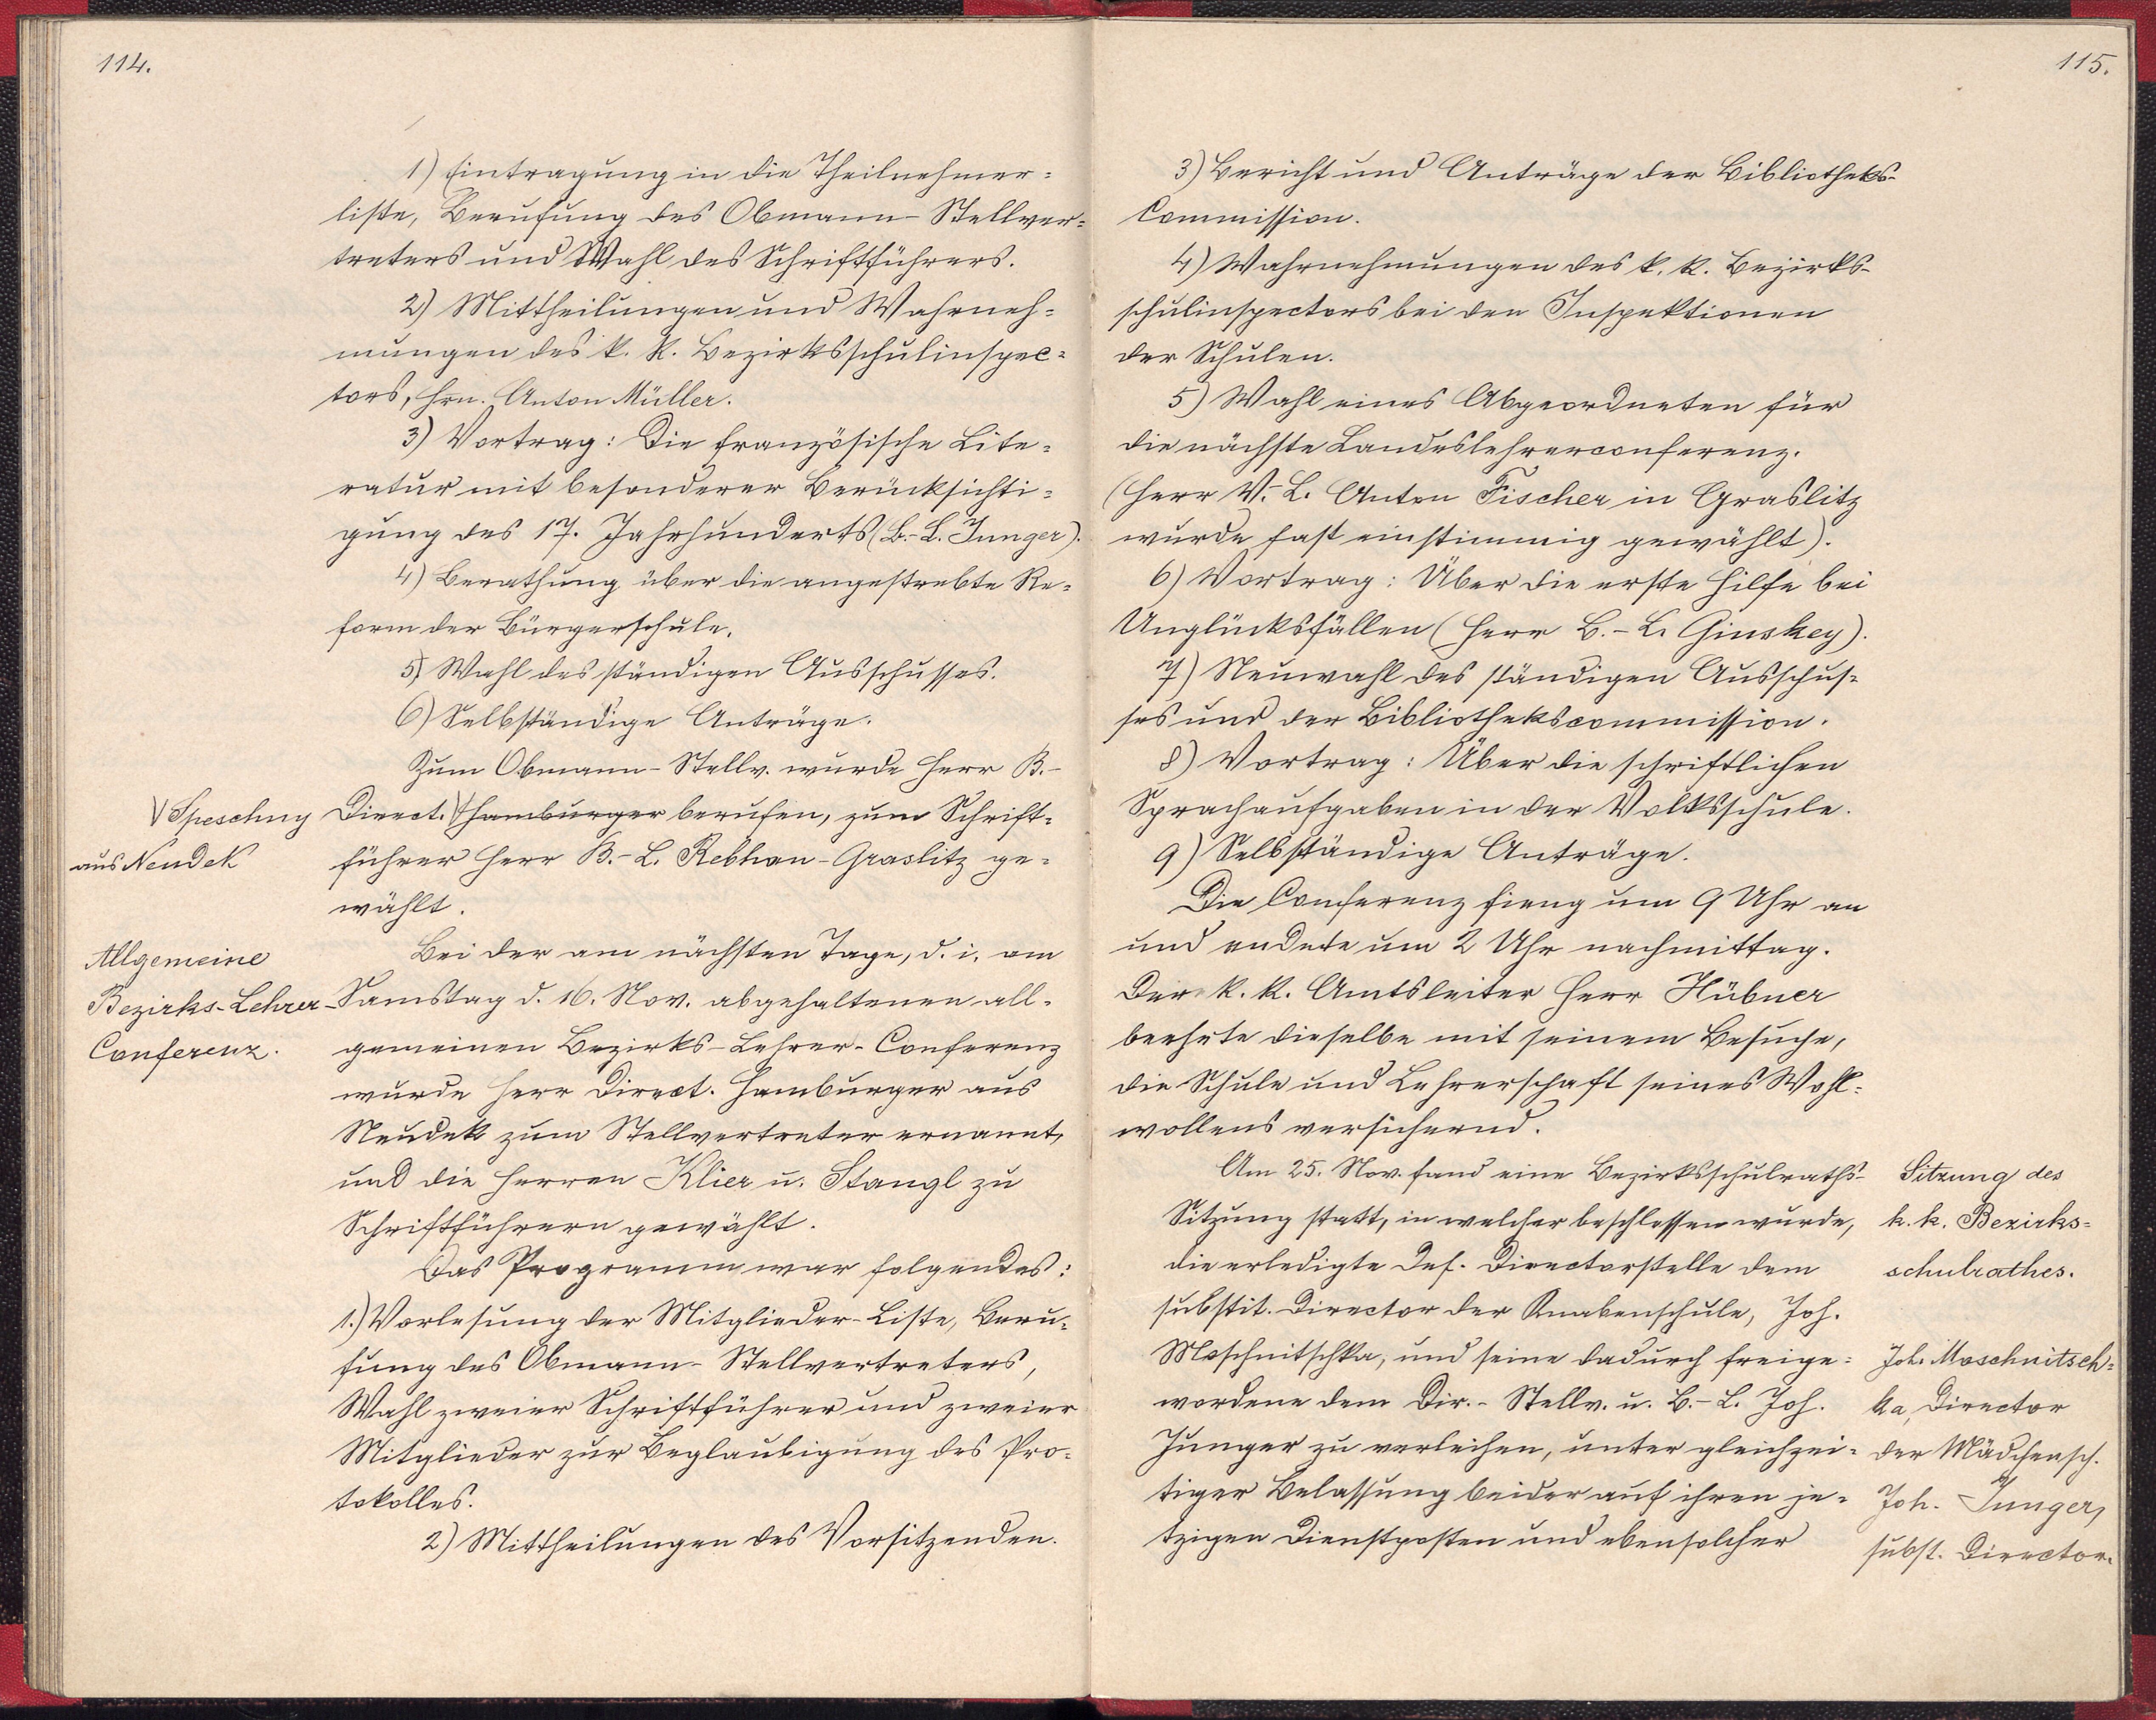 114.
1) Eintragung in die Theilnehmer=
liste, Berufung des Obmann-Stellver=
treters und Wahl des Schriftführers.
2) Mittheilungen und Wahrneh=
mungen des k. k. Bezirksschulinspec=
tors, Hrn. Anton Müller.
3) Vortrag: Die französische Lite=
ratur mit besonderer Berücksichti=
gung des 17. Jahrhunderts (B.-L. Junger).
4) Berathung über die angestrebte Re=
form der Bürgerschule.
5) Wahl des ständigen Ausschusses.
6) Selbständige Anträge.
Zum Obmann-Stellv. wurde Herr B.-
V Speschny
aus Neudek
Direct. V Hamburger berufen, zum Schrift=
führer Herr B.-L. Rebhan-Graslitz ge=
wählt.
Allgemeine
Bezirks-Lehrer-
Conferenz.
Bei der am nächsten Tage, d. i. am
Samstag d. 16. Nov. abgehaltenen all=
gemeinen Bezirks-Lehrer-Conferenz
wurde Herr Direct. Hamburger aus
Neudek zum Stellvertreter ernannt,
und die Herren Klier u. Stangl zu
Schriftführern gewählt.
Das Programm war folgendes:
1.) Vorlesung der Mitglieder-Liste, Beru=
fung des Obmann-Stellvertreters,
Wahl zweier Schriftführer und zweier
Mitglieder zur Beglaubigung des Pro=
tokolles.
2) Mittheilungen des Vorsitzenden.
115.
3) Bericht und Anträge der Bibliotheks-
Commission.
4) Wahrnehmungen des k. k. Bezirks-
schulinspectors bei den Inspektionen
der Schulen.
5) Wahl eines Abgeordneten für
die nächste Landeslehrerconferenz.
(Herr V.-L. Anton Fischer in Graslitz
wurde fast einstimmig gewählt).
6) Vortrag: Über die erste Hilfe bei
Unglücksfällen (Herr B.-L. Ginskey).
7) Neuwahl des ständigen Ausschus=
ses und der Bibliothekscommission.
8) Vortrag: Über die schriftlichen
Sprachaufgaben in der Volksschule.
9) Selbständige Anträge.
Die Conferenz fieng um 9 Uhr an
und endete um 2 Uhr nachmittag.
Der k. k. Amtsleiter Herr Hübner
beehrte dieselbe mit seinem Besuche,
die Schule und Lehrerschaft seines Wohl=
wollens versichernd.
Am 25. Nov. fand eine Bezirksschulraths-
Sitzung statt, in welcher beschlossen wurde,
die erledigte Def. Directorstelle dem
substit. Director der Knabenschule, Joh.
Moschnitschka, und seine dadurch freige=
wordene dem Dir.-Stellv. u. B.-L. Joh.
Junger zu verleihen, unter gleichzei=
tiger Belassung beider auf ihren je=
tzigen Dienstposten und ebensolcher
Sitzung des
k. k. Bezirks=
schulrathes.
Joh. Moschnitsch=
ka, Director
der Mädchensch.
Joh. Junger,
subst. Director.